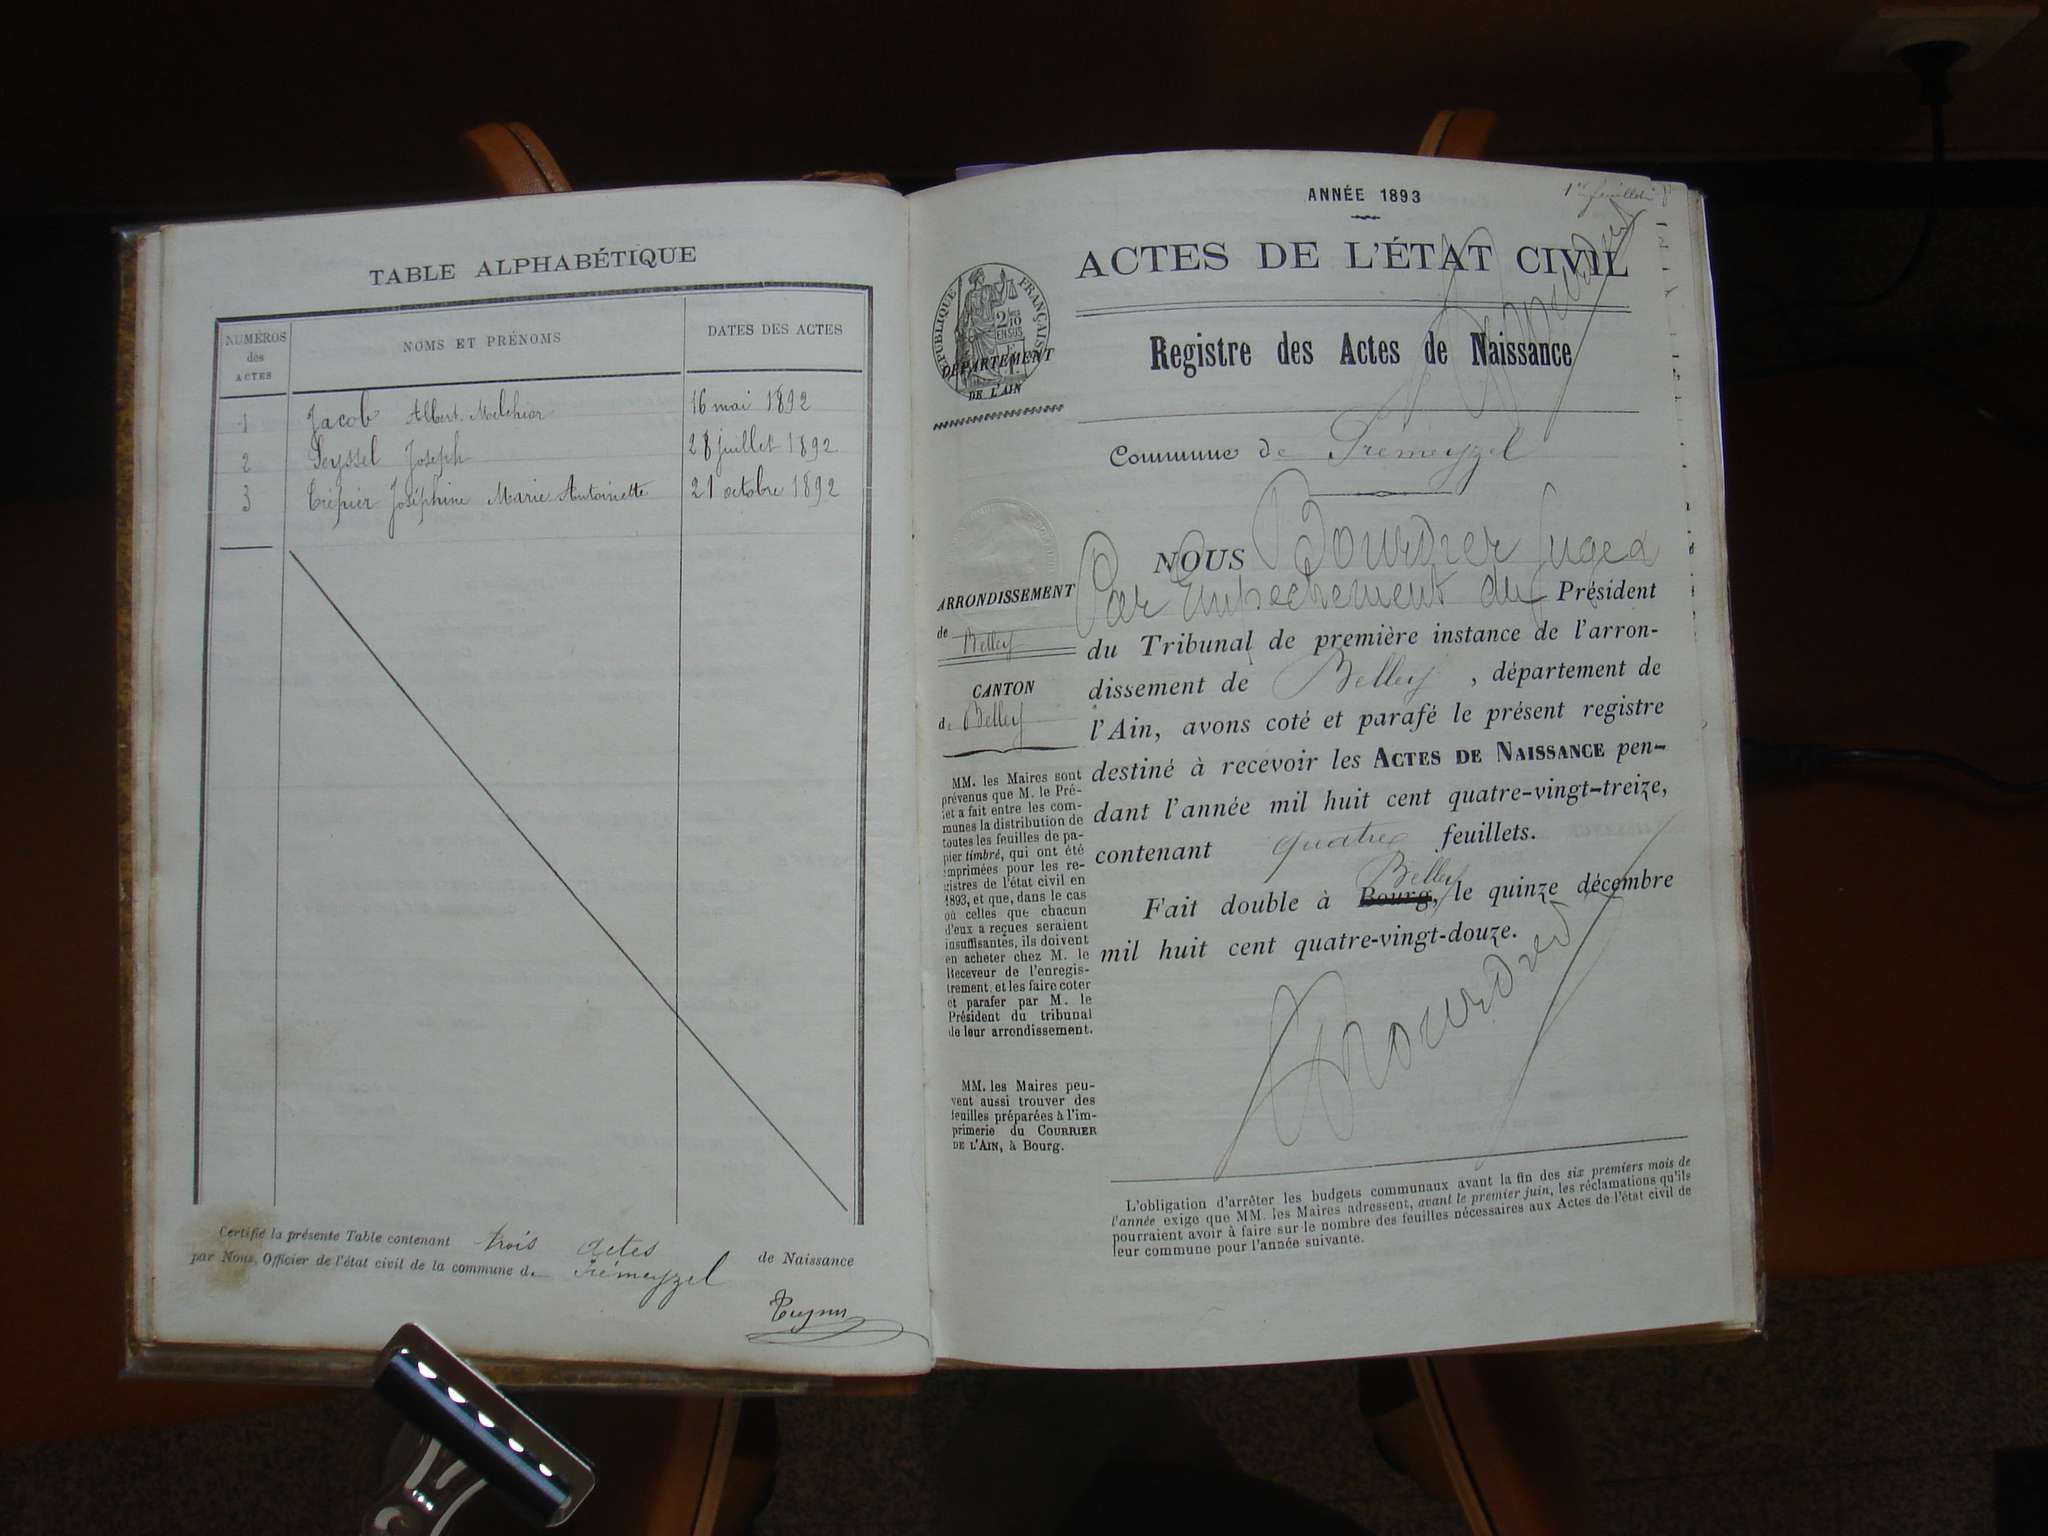 TABLE ALPHABÉTIQUE
NUMÉROS
des
ACTES
NOMS ET PRÉNOMS
DATES DES ACTES
1 Jacob Albert Melchior 16 mai 1892
2 Seyssel Joseph 28 juillet 1892
3 Crépier Joséphine Marie Antoinette 21 octobre 1892
Certifié la présente Table contenant trois actes de Naissance
par Nous, Officier de l'état civil de la commune de Prémeyzel
ANNÉE 1893
1er feuillet
ACTES DE L'ÉTAT CIVIL
RÉPUBLIQUE FRANÇAISE
2/10
EN SUS
DÉPARTEMENT
DE L'AIN
Registre des Actes de Naissance
Commune de Prémeyzel
NOUS Bourdier Juge
Par Empechement du Président
du Tribunal de première instance de l'arron-
dissement de Belley, département de
l'Ain, avons coté et parafé le présent registre
destiné à recevoir les ACTES DE NAISSANCE pen-
dant l'année mil huit cent quatre-vingt-treize,
contenant quatre feuillets.
Belley
Fait double à Bourg, le quinze décembre
mil huit cent quatre-vingt-douze.
Bourdier
ARRONDISSEMENT
de Belley
CANTON
de Belley
MM. les Maires sont
prévenus que M. le Pré-
fet a fait entre les com-
munes la distribution de
toutes les feuilles de pa-
pier timbré, qui ont été
imprimées pour les re-
gistres de l'état civil en
1893, et que, dans le cas
où celles que chacun
d'eux a reçues seraient
insuffisantes, ils doivent
en acheter chez M. le
Receveur de l'enregis-
trement, et les faire coter
et parafer par M. le
Président du tribunal
de leur arrondissement.
MM. les Maires peu-
vent aussi trouver des
feuilles préparées à l'im-
primerie du COURRIER
DE L'AIN, à Bourg.
L'obligation d'arrêter les budgets communaux avant la fin des six premiers mois de
l'année exige que MM. les Maires adressent, avant le premier juin, les réclamations qu'ils
pourraient avoir à faire sur le nombre des feuilles nécessaires aux Actes de l'état civil de
leur commune pour l'année suivante.